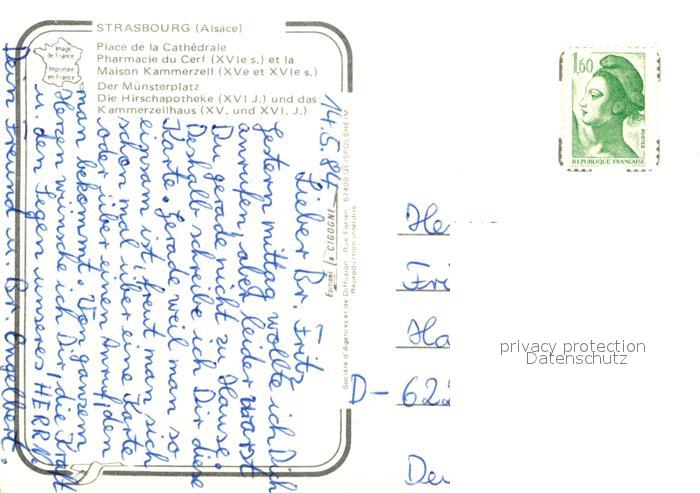 STRASBOURG (Alsace)
Image
de France
Imprimée
en France
Place de la Cathédrale
Pharmacie du Cerf (XVIe s.) et la
Maison Kammerzell (XVe et XVIe s.)
Der Münsterplatz
Die Hirschapotheke (XVI J.) und das
Kammerzellhaus (XV. und XVI. J.)
14.5.84
Lieber Br. Fritz
Gestern mittag wollte ich Dich
anrufen, aber leider warst
Du gerade nicht zu Hause.
Deshalb schreibe ich Dir diese
Karte. Gerade weil man so
einsam ist, freut man sich
schon mal über eine Karte
oder über einen Anruf, den
man bekommt. Von ganzem
Herzen wünsche ich Dir, die Kraft
u. den Segen unseres HERRN.
Dein Freund u. Br. Engelbert.
Editions La CIGOGNE
Société d'Agences et de Diffusion Rue Forlen 67400 GEISPOLSHEIM
Reproduction interdite
1,60
POSTES
REPUBLIQUE FRANÇAISE
He
Fri
Ha
D - 622
De
privacy protection
Datenschutz